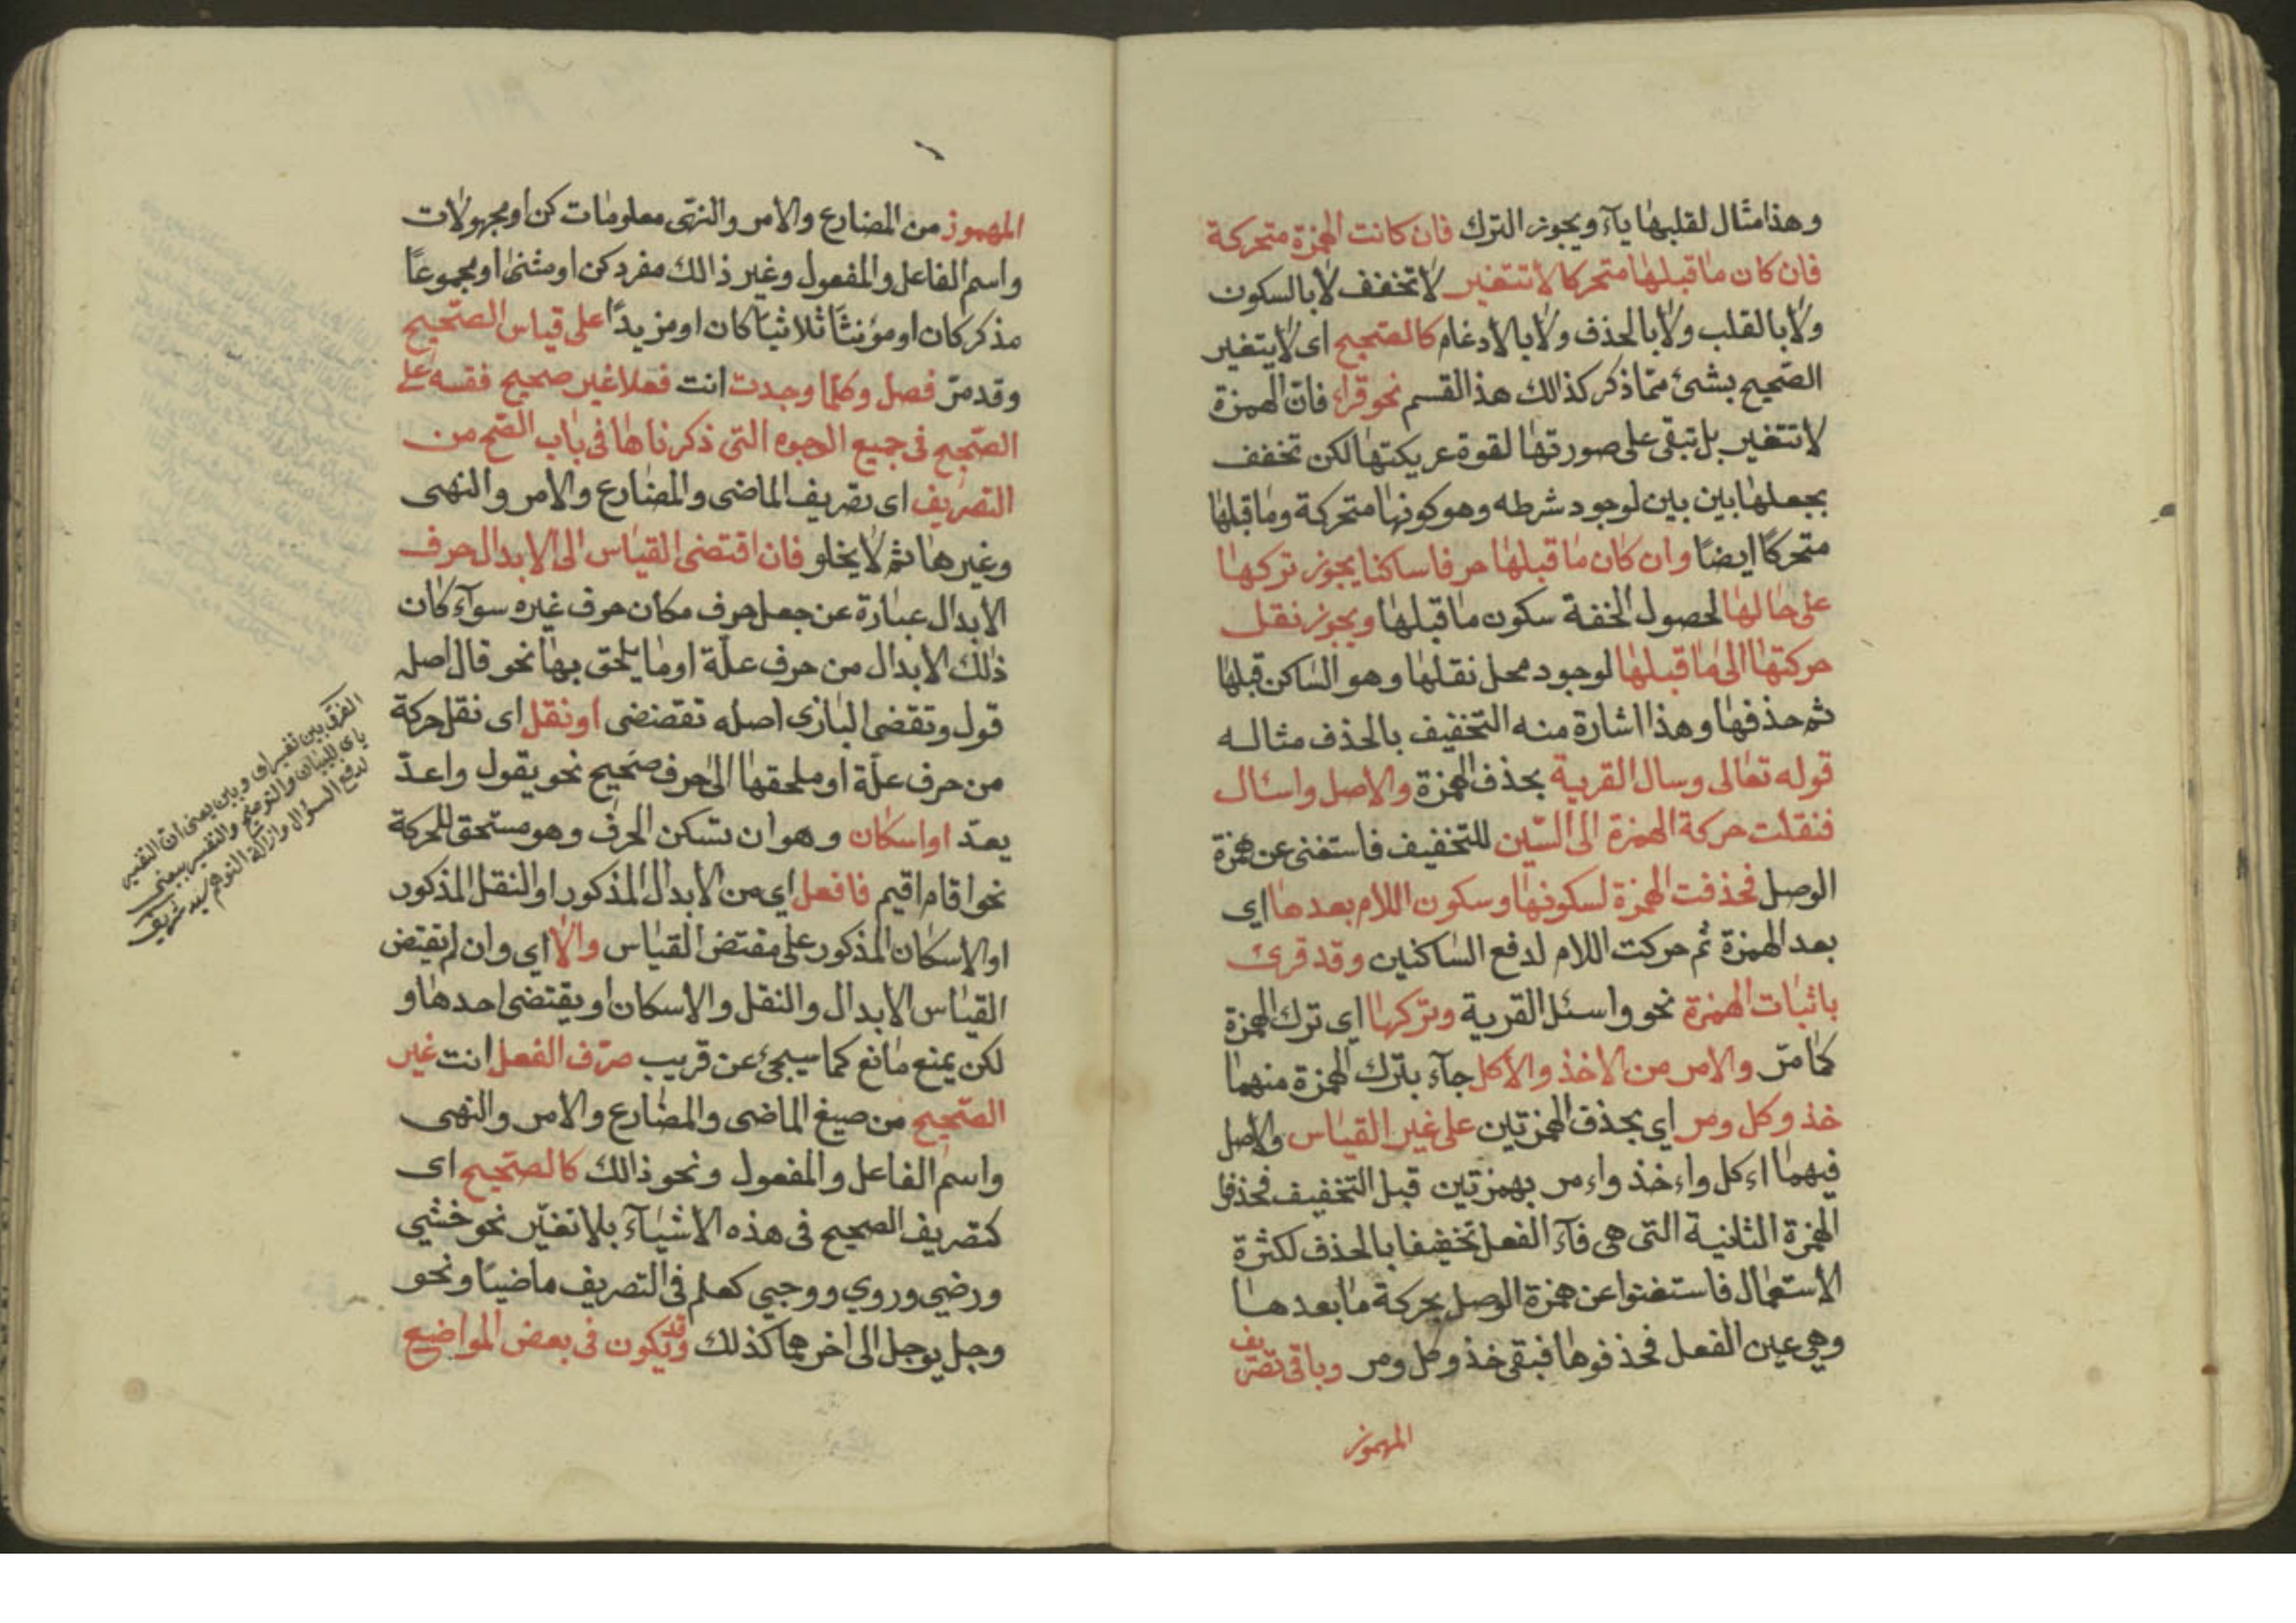 وهذا مثال لقلبها يآء ويجوز الترك فان كانت الهمزة متحركة
فان كان ما قبلها متحركا لا تتغير لا تخفف لا بالسكون
ولا بالقلب ولا بالحذف ولا بالادغام كالصحيح اى لا يتغير
الصحيح بشئ ممّا ذكر كذالك هذا القسم نحو قراء فانّ الهمزة
لا تتغير بل تبقى على صورتها لقوة عريكتها لكن تخفف
بجعلها بين بين لوجود شرطه وهو كونها متحركة وما قبلها
متحركًا ايضًا وان كان ما قبلها حرفا ساكنا يجوز تركها
على حالها لحصول الخفة سكون ما قبلها ويجوز نقل
حركتها الى ما قبلها لوجود محل نقلها وهو الساكن قبلها
ثم حذفها وهذا اشارة منه التخفيف بالحذف مثاله
قوله تعالى وسال القرية بحذف الهمزة والاصل واسئال
فنقلت حركة الهمزة الى السّين للتخفيف فاستغنى عن همزة
الوصل فحذفت الهمزة لسكونها وسكون اللام بعدها اي
بعد الهمزة ثم حركت اللام لدفع الساكنين وقد قرئ
باثبات الهمزة نحو واسئل القرية وتركها اي ترك الهمزة
كما مرّ والامر من الاخذ والاكل جآء بترك الهمزة منهما
خذ وكل ومر اي بحذف الهمزتين على غير القياس والاصل
فيهما اءكل واءخذ واءمر بهمزتين قبل التخفيف فحذفوا
الهمزة الثانية التى هى فآء الفعل تخفيفا بالحذف لكثرة
الاستعمال فاستغنوا عن همزة الوصل بحركة ما بعدها
وهي عين الفعل فحذفوها فبقى خذ وكل ومر وباقى تصريف
المهموز
المهموز من المضارع والامر والنهى معلومات كن او مجهولات
واسم الفاعل والمفعول وغير ذالك مفرد كن او مثنى او مجموعًا
مذكر كان او مؤنثًا ثلاثيًا كان او مزيدًا على قياس الصّحيح
وقد مرّ فصل وكلّما وجدت انت فعلا غير صحيح فقسه على
الصّحيح فى جميع الوجوه التى ذكرناها فى باب الصّحيح من
التصريف اى تصريف الماضى والمضارع والامر والنهى
وغيرها ثم لا يخلو فان اقتضى القياس الى الابدال حرف
الابدال عبارة عن جعل حرف مكان حرف غيره سوآء كان
ذلك الابدال من حرف علّة او ما يلحق بها نحو قال اصله
قول وتقضى البازى اصله تقضضى او نقل اى نقل حركة
من حرف علّة او ملحقها الى حرف صحيح نحو يقول واعدّ
يعدّ او اسكان وهو ان تسكن الحرف وهو مستحق للحركة
نحو اقام اقيم فافعل اي من الابدال المذكور او النقل المذكور
او الاسكان المذكور على مقتضى القياس والاّ اي وان لم يقتض
القياس الابدال والنقل والاسكان او يقتضى احدها و
لكن يمنع مانع كما سيجئ عن قريب صرّف الفعل انت غير
الصّحيح من صيغ الماضى والمضارع والامر والنهى
واسم الفاعل والمفعول ونحو ذالك كالصّحيح اى
كتصريف الصحيح فى هذه الاشيآء بلا تغيّر نحو خشي
ورضي وروي ووجي كعلم فى التصريف ماضيًا ونحو
وجل يوجل الى اخرهما كذلك وقد يكون فى بعض المواضيع
الفرق بين تفسير اى وبين يعنى ان التفسير
باى للبيان والتوضيح والتفسير بيعنى
لدفع السؤال وازالة التوهم سيد شريف